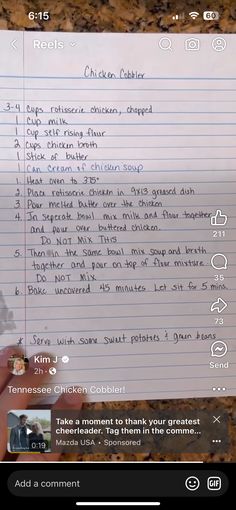 6:15
60
Reels
Chicken Cobbler
3-4 Cups rotisserie chicken, chopped
1 Cup milk
1 Cup self rising flour
2 Cups chicken broth
1 Stick of butter
1 Can Cream of chicken soup
1. Heat oven to 375°
2. Place rotisserie chicken in 9x13 greased dish
3 Pour melted butter over the chicken
4. In seperate bowl mix milk and flour together
and pour over buttered chicken.
DO NOT MIX THIS
211
5. Then in the same bowl mix soup and broth
together and pour on top of flour mixture.
DO NOT MIX
35
6. Bake uncovered 45 minutes Let sit for 5 mins.
73
* Serve with some sweet potatoes & green beans
Send
Kim J
2h
Tennessee Chicken Cobbler!
Take a moment to thank your greatest
cheerleader. Tag them in the comme...
Mazda USA • Sponsored
0:19
Add a comment
GIF